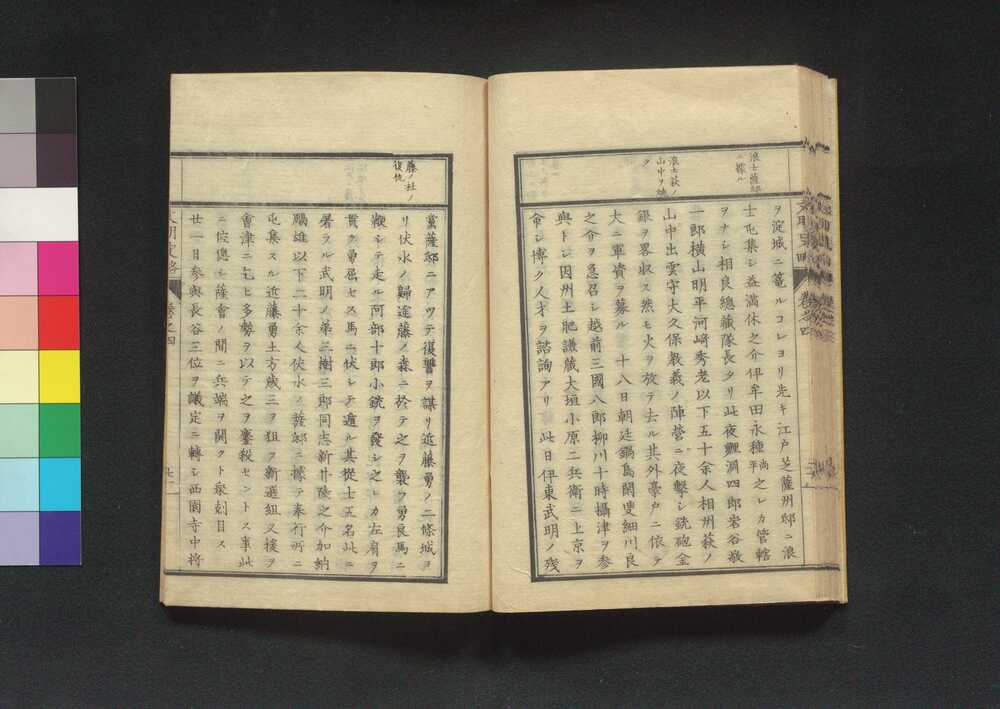 浪士薩邸
ニ據ル
浪士萩ノ
山中ヲ燒
ク
ヲ淀城ニ篭ルコレヨリ先キ江戸芝薩州邸ニ浪
士屯集シ益満休之介伊牟田永種尚平之レカ管轄
ヲナシ相良總藏隊長タリ此夜鯉淵四郎岩谷敬
一郎横山明平河﨑秀老以下五十余人相州萩ノ
山中出雲守大久保教義ノ陣營ニ夜擊シ銃砲金
銀ヲ畧収ス然モ火ヲ放テ去ル其外豪戸ニ依テ
大ニ軍資ヲ募ル 十八日朝廷鍋島閑叟細川良
之介ヲ急召シ越前三國八郎柳川十時攝津ヲ参
與トシ因州土肥謙藏大垣小原二兵衛ニ上京ヲ
命シ博ク人才ヲ諮詢アリ 此日伊東武明ノ残
文明史略 卷之四
藤ノ社ノ
復仇
黨薩邸ニアツテ復讐ヲ謀リ近藤勇ノ二條城ヨ
リ伏水ノ歸途藤ノ森ニ於テ之ヲ襲フ勇良馬ニ
鞭シテ走ル阿部十郎小銃ヲ發シ之レカ左肩ヲ
貫ク勇屈セス馬ニ伏シテ遁ル其從士五名此ニ
屠ラル武明ノ弟三樹三郎同志新井陸之介加納
鵰雄以下二十余人伏水ノ薩邸ニ據テ奉行所ニ
屯集スル近藤勇土方歳三ヲ狙フ新選組又援ヲ
會津ニ乞ヒ多勢ヲ以テ之ヲ鏖殺セントス事此
ニ倥偬シ薩會ノ間ニ兵端ヲ開クト衆刮目ス
廿一日参與長谷三位ヲ議定ニ轉シ西園寺中将
文明史略 卷之四